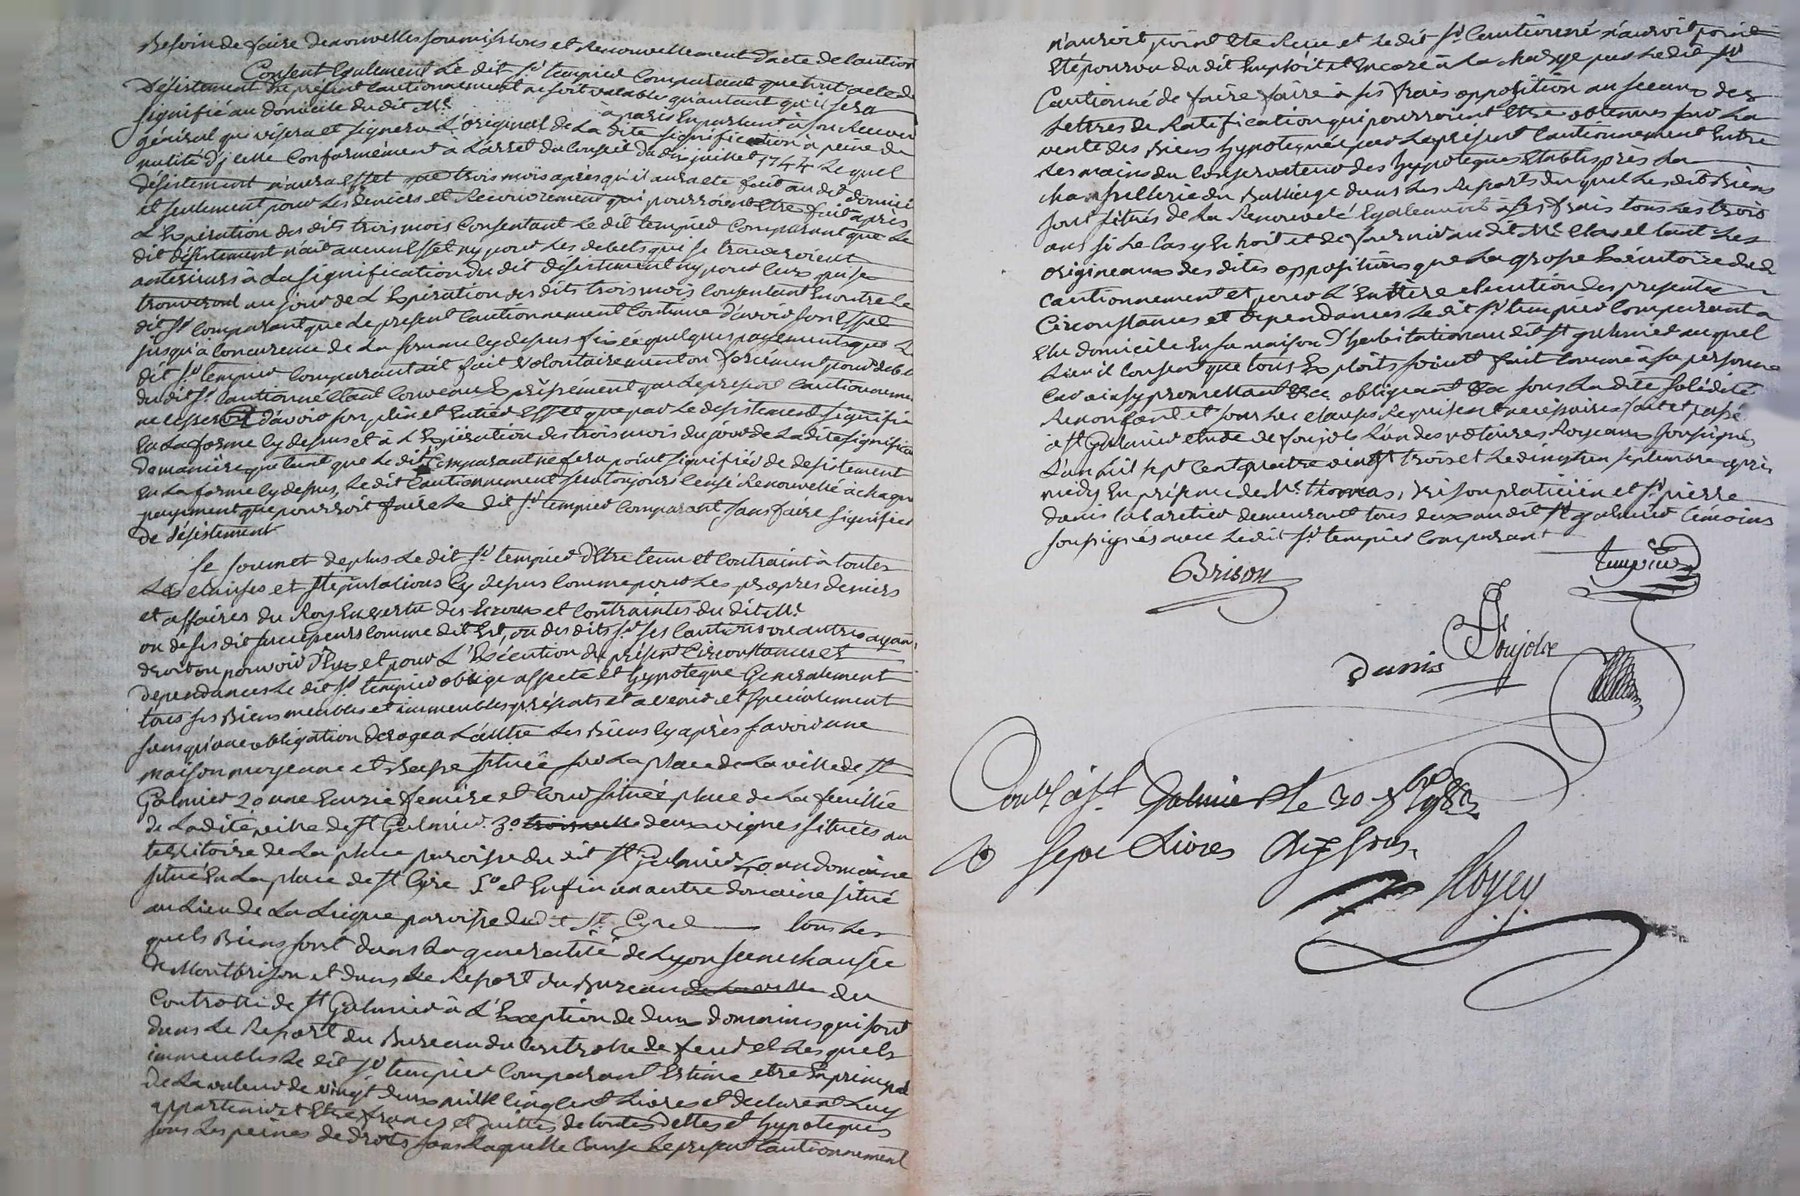 Besoin de faire de nouvelles soumissions et Renouvellement d'acte de caution
Consent Egalement Le dit Sr. tempier Comparant que tout acte de
Désistement du présent Cautionnement ne soit valables qu'autant qu'il sera
signifié au domicile du dit Mr. à paris En parlant à son Receveur
général qui visera et signera L'original de La dite signification a peine de
nulité d'jcelle Conformément a L'arret du Conseil du dix juillet 1744 Le quel
désistement n'aura Effet que trois mois apres qu'il aura eté fait au dit domici
et seulement pour Les deniers et Recouvrement qui pourroient Etre fait après
L'Expiration des dits trois mois Consentant Le dit tempier Comparant que Le
dit désistement n'ait aucun Effet ny pour Les debets qui se trouveroient
anterieurs à La signification du dit désistement ny pour Ceux qui se
trouveront au jour de L'Expiration des dits trois mois Consentant En outre Le
dit Sr. Comparant que Le present Cautionnement Continue d'avoir son Effet
jusqu'à Concurence de La somme Cy dessus fixée quelques payements que Le
dit Sr. tempier Comparant ait fait volontairement ou forcément pour debet
du dit Sr. Cautionné Etant Convenu Expressément que Le present Cautionneme
ne cessera d'avoir son plein et Entier Effet que par Le desistement signifié
En La forme Cy dessus et a L'Expiration des trois mois du jour de La dite significa
de manière que tant que Le dit Comparant ne fera point signifier de desistement
En La forme Cy dessus, Le dit Cautionnement sera toujours Censé Renouvellé à chaque
payement que pourroit faire Le dit Sr. tempier Comparant sans faire signifier
de désistement
Se soumet de plus Le dit Sr. tempier d'Etre tenu et contraint à toutes
Les clauses et stipulations Cy dessus Comme pour Les propres deniers
et affaires du Roy En vertu des et contraintes du dit Mr.
ou de ses dit successeurs Comme dit Est, ou des dits Srs. ses Cautions ou autres ayan
droit ou pouvoir d'Eux et pour L'Exécution du présent Circonstances et
dependances Le dit Sr. tempier oblige affecte et hypoteque Generalement
tous ses Biens meubles et immeubles présents et a venir et spécialement
sans qu'une obligation deroge a L'autre Les Biens Cy après savoir une
maison moyenne et Basse située sur La place de La ville de St
Galmier 2o une Ecurie feniere et Cour située place de La feuillée
de La dite ville de St Galmier. 3o deux vignes situées au
territoire de La plaee paroisse du dit St Galmier 4o un domaine
situé En La place de St Cyre 5o et Enfin un autre domaine situé
au Lieu de La Ligue paroisse du dt St. Cyre tous Les
quels Biens sont dans La generalité de Lyon senechausée
de Montbrison et dans Le Report du Bureau de La ville du
Controlle de St Galmier à L'Exception de deux domaines qui sont
dans Le Report du Bureau du Controlle de feur et Les quels
immeubles Le dit Sr. tempier Comparant Estime etre En principal
de La valeur de vingt deux mille Cinq Cent Livres et declarent Luy
appartenir et Etre francs et quittes de toutes dettes et hypoteques
sous Les peines de droits sans Laquelle Cause Le present Cautionnement
n'auroit point Eté Reçu et Le dit Sr. Cautionné n'auroit point
Eté pourvu du dit Employ et Encore à La charge par Le dit Sr.
Cautionné de faire faire a ses frais opposition au sceaux des
Lettres de Ratification qui pourroient Etre obtenues sur La
vente des Biens hypotequés par Le présent Cautionnement Entre
Les mains du Conservateur des hypoteques Etablis près La
chansellerie du Balliage dans Les Reports du quel Les dit Biens
sont situés de La Renouvelé Egalement à ses frais tous Les trois
ans si Le Cas y Echoit et de fournir au dit Mr. Clavel tant Les
origineaux des dites oppositions que La grosse Exécutoire du dt
Cautionnement et pour L'Entière execution des presentes
Circonstances et dependances Le dit Sr. tempier Comparant a
Elu domicile En sa maison d'habitation au dit St galmier auquel
Lieu il Consent que tous Exploits soient fait Comme à sa personne
Car ainsy promettant &a obligeant &a sous La dite solidité
Renonçant et sous Les clauses Requises et nécessaires fait et passé
à St Galmier etude de Poujols L'un des notaires Royeaux soussignés
L'an mil sept Cent quatre vingt trois et Le dixseptembre après
midy En présence de Mr. thomas, Brison praticien et Sr. pierre
danis Cabaretier demeurant tous deux au dit St galmier témoins
soussignés avec Le dit Sr. tempier Comparant
Brison
Tempier
Poujols
Danis
Conlé à St. Galmier Le 30 7bre 1783
Rs sept Livres dix sous.
Royey